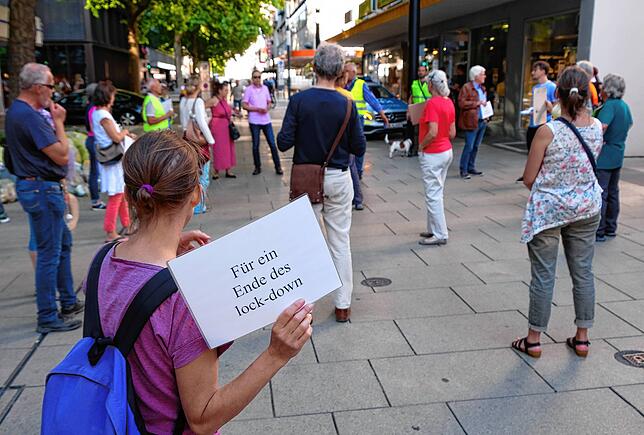 Für ein
Ende des
lock-down